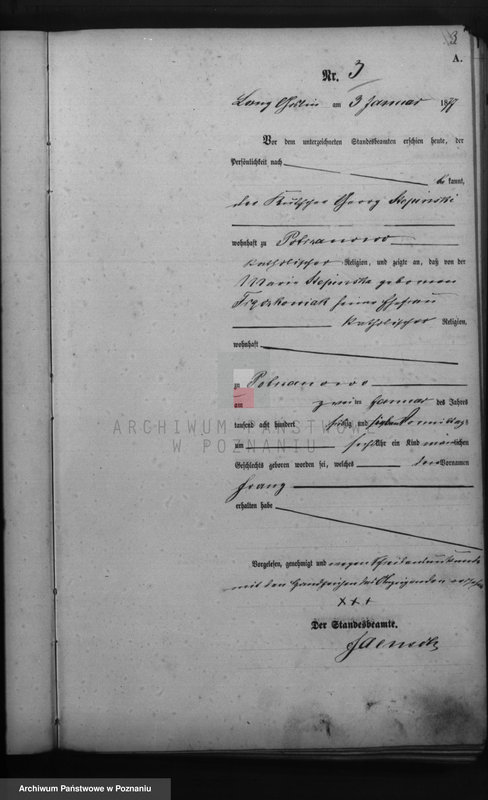 3
A.
Nr. 3
Lang Goslin am 3 Januar 1877
Vor dem unterzeichneten Standesbeamten erschien heute, der
Persönlichkeit nach
be kannt,
der Kutscher Georg Stopinski
wohnhaft zu
katholischer Religion, und zeigte an, daß von der
Marie Stopinska geborenen
seiner Ehefrau
katholischer Religion,
wohnhaft
zu
am zweiten Januar des Jahres
tausend acht hundert siebzig und sieben Vormittags
um sechs Uhr ein Kind männlichen
Geschlechts geboren worden sei, welches den Vornamen
Franz
erhalten habe
Vorgelesen, genehmigt und wegen
mit den Handzeichen des
+++
Der Standesbeamte.
ARCHIWUM PAŃSTWOWE
W POZNANIU
Archiwum Państwowe w Poznaniu